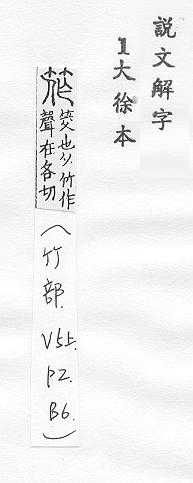 説文解字
1大徐本
筰
筊也从竹作
聲在各切
(竹部. V5上. P2. B6.)